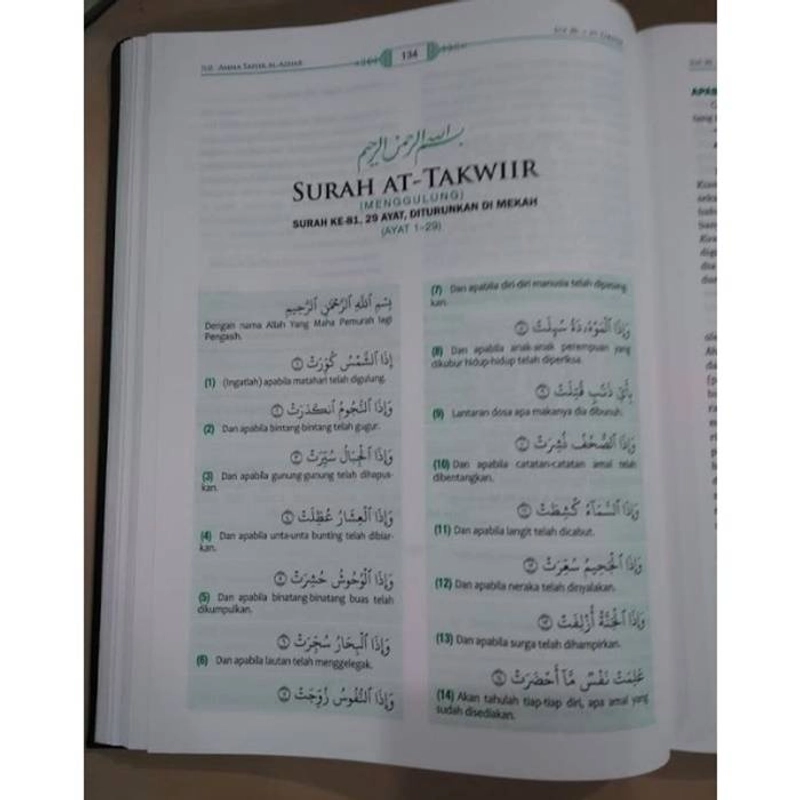 TAFSIR AL-AZHAR
134
بسم الله الرحمن الرحيم
SURAH AT-TAKWIIR
(MENGGULUNG)
SURAH KE-81, 29 AYAT, DITURUNKAN DI MEKAH
(AYAT 1-29)
بِسْمِ اللَّهِ الرَّحْمَٰنِ الرَّحِيمِ
Dengan nama Allah Yang Maha Pemurah lagi
Pengasih.
إِذَا الشَّمْسُ كُوِّرَتْ ١
(1) (Ingatlah) apabila matahari telah digulung.
وَإِذَا النُّجُومُ انكَدَرَتْ ٢
(2) Dan apabila bintang-bintang telah gugur.
وَإِذَا الْجِبَالُ سُيِّرَتْ ٣
(3) Dan apabila gunung-gunung telah dihapus-
kan.
وَإِذَا الْعِشَارُ عُطِّلَتْ ٤
(4) Dan apabila unta-unta bunting telah dibiar-
kan.
وَإِذَا الْوُحُوشُ حُشِرَتْ ٥
(5) Dan apabila binatang-binatang buas telah
dikumpulkan.
وَإِذَا الْبِحَارُ سُجِّرَتْ ٦
(6) Dan apabila lautan telah menggelegak.
وَإِذَا النُّفُوسُ زُوِّجَتْ ٧
(7) Dan apabila diri-diri manusia telah dipasang-
kan.
وَإِذَا الْمَوْءُودَةُ سُئِلَتْ ٨
(8) Dan apabila anak-anak perempuan yang
dikubur hidup-hidup telah diperiksa.
بِأَيِّ ذَنبٍ قُتِلَتْ ٩
(9) Lantaran dosa apa makanya dia dibunuh.
وَإِذَا الصُّحُفُ نُشِرَتْ ١٠
(10) Dan apabila catatan-catatan amal telah
dibentangkan.
وَإِذَا السَّمَاءُ كُشِطَتْ ١١
(11) Dan apabila langit telah dicabut.
وَإِذَا الْجَحِيمُ سُعِّرَتْ ١٢
(12) Dan apabila neraka telah dinyalakan.
وَإِذَا الْجَنَّةُ أُزْلِفَتْ ١٣
(13) Dan apabila surga telah dihampirkan.
عَلِمَتْ نَفْسٌ مَّا أَحْضَرَتْ ١٤
(14) Akan tahulah tiap-tiap diri, apa amal yang
sudah disediakan.